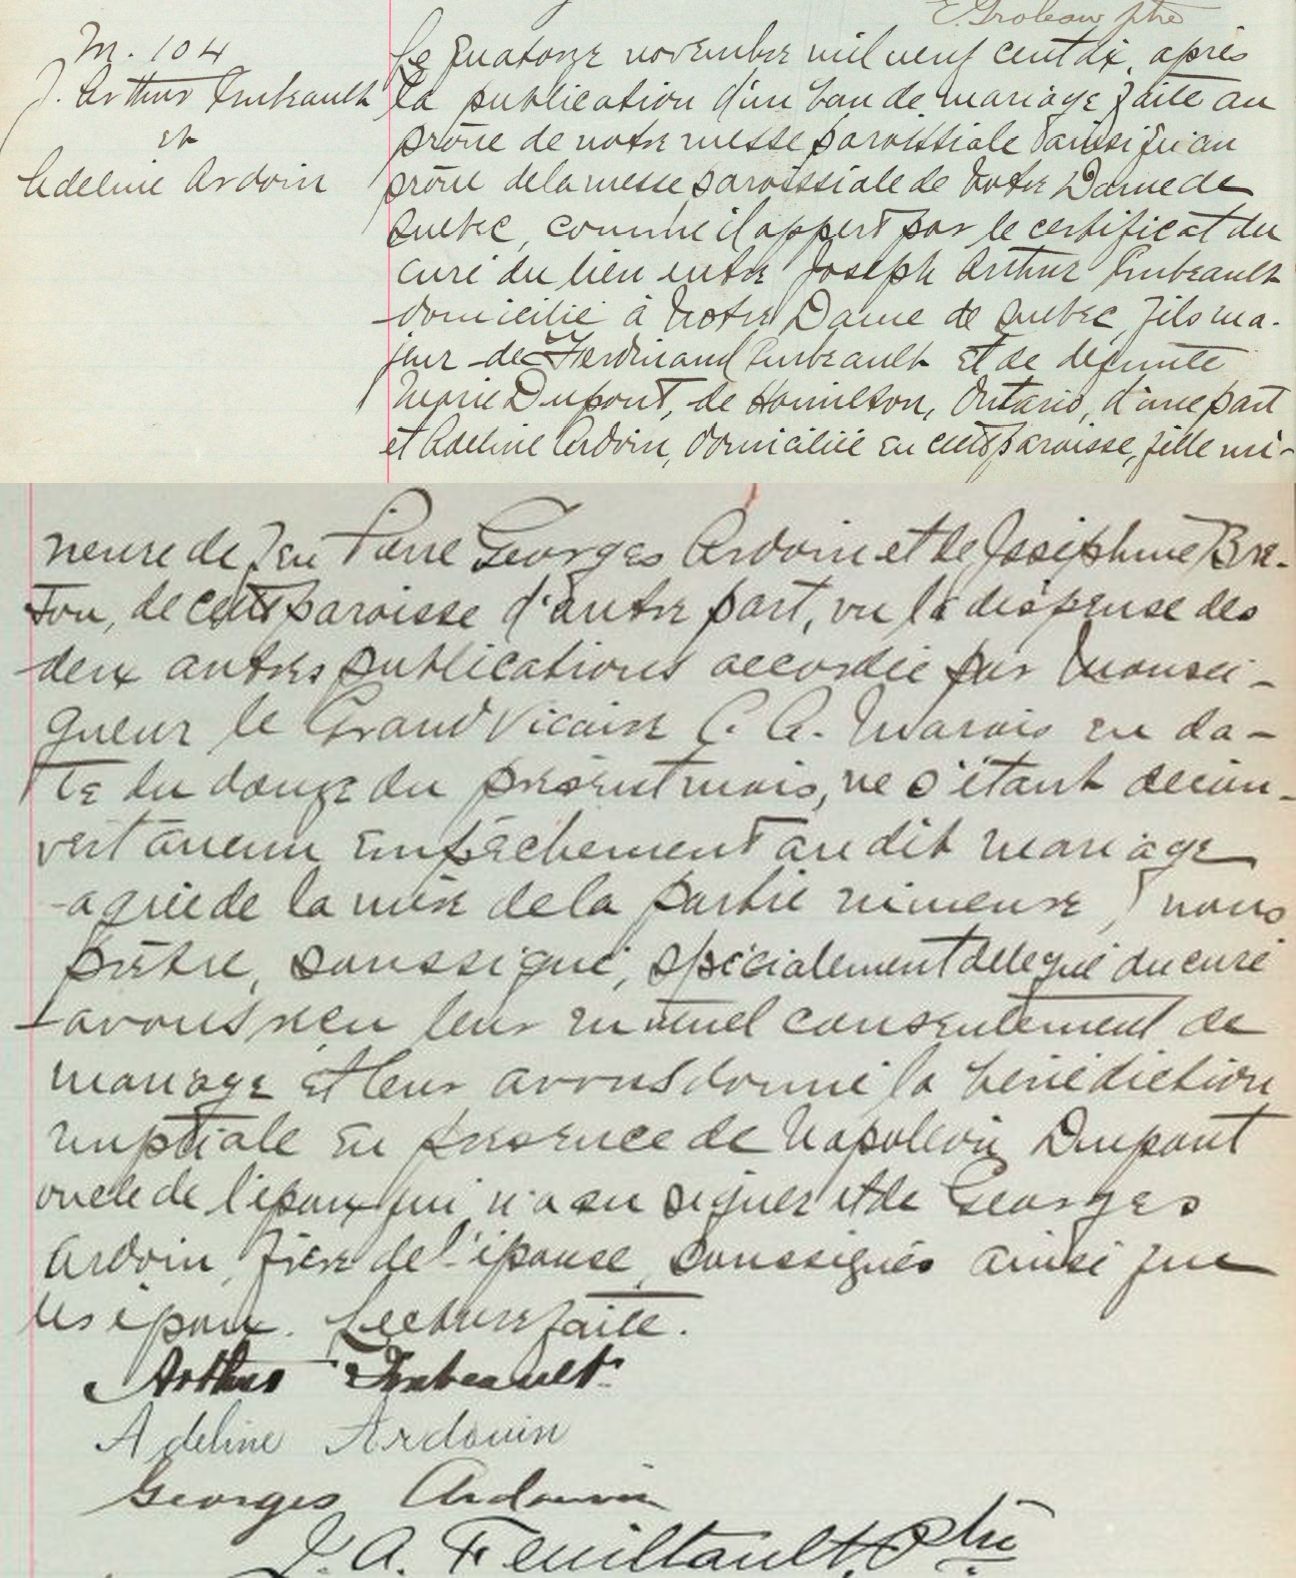 E. Groleau ptre
M. 104
J. Arthur Imbeault
et
Adeline Ardoin
Le quatorze novembre mil neuf cent dix, après
la publication d'un ban de mariage faite au
prône de notre messe paroissiale ainsi qu'au
prône de la messe paroissiale de Notre Dame de
Québec, comme il appert par le certificat du
curé du lieu entre Joseph Arthur Imbeault
domicilié à Notre Dame de Québec, fils ma-
jeur de Ferdinand Imbeault et de défunte
Marie Dupont, de Hamilton, Ontario, d'une part
et Adeline Ardoin, domiciliée en cette paroisse, fille mi-
neure de feu Pierre Georges Ardoin et de Joséphine Bre-
ton, de cette paroisse d'autre part, vu la dispense des
deux autres publications accordée par Monsei-
gneur le Grand Vicaire C. A. Marois en da-
te du douze du présent mois, ne s'étant décou-
vert aucun empêchement au dit mariage
agréé de la mère de la partie mineure, nous
prêtre, soussigné, spécialement délégué du curé
avons reçu leur mutuel consentement de
mariage et leur avons donné la bénédiction
nuptiale en présence de Napoléon Dupont
oncle de l'époux qui n'a su signer et de Georges
Ardoin, frère de l'épouse, soussignés ainsi que
les époux. Lecture faite.
Arthur Imbeault
Adeline Ardouin
Georges Ardouin
J. A. Feuiltault, Ptre